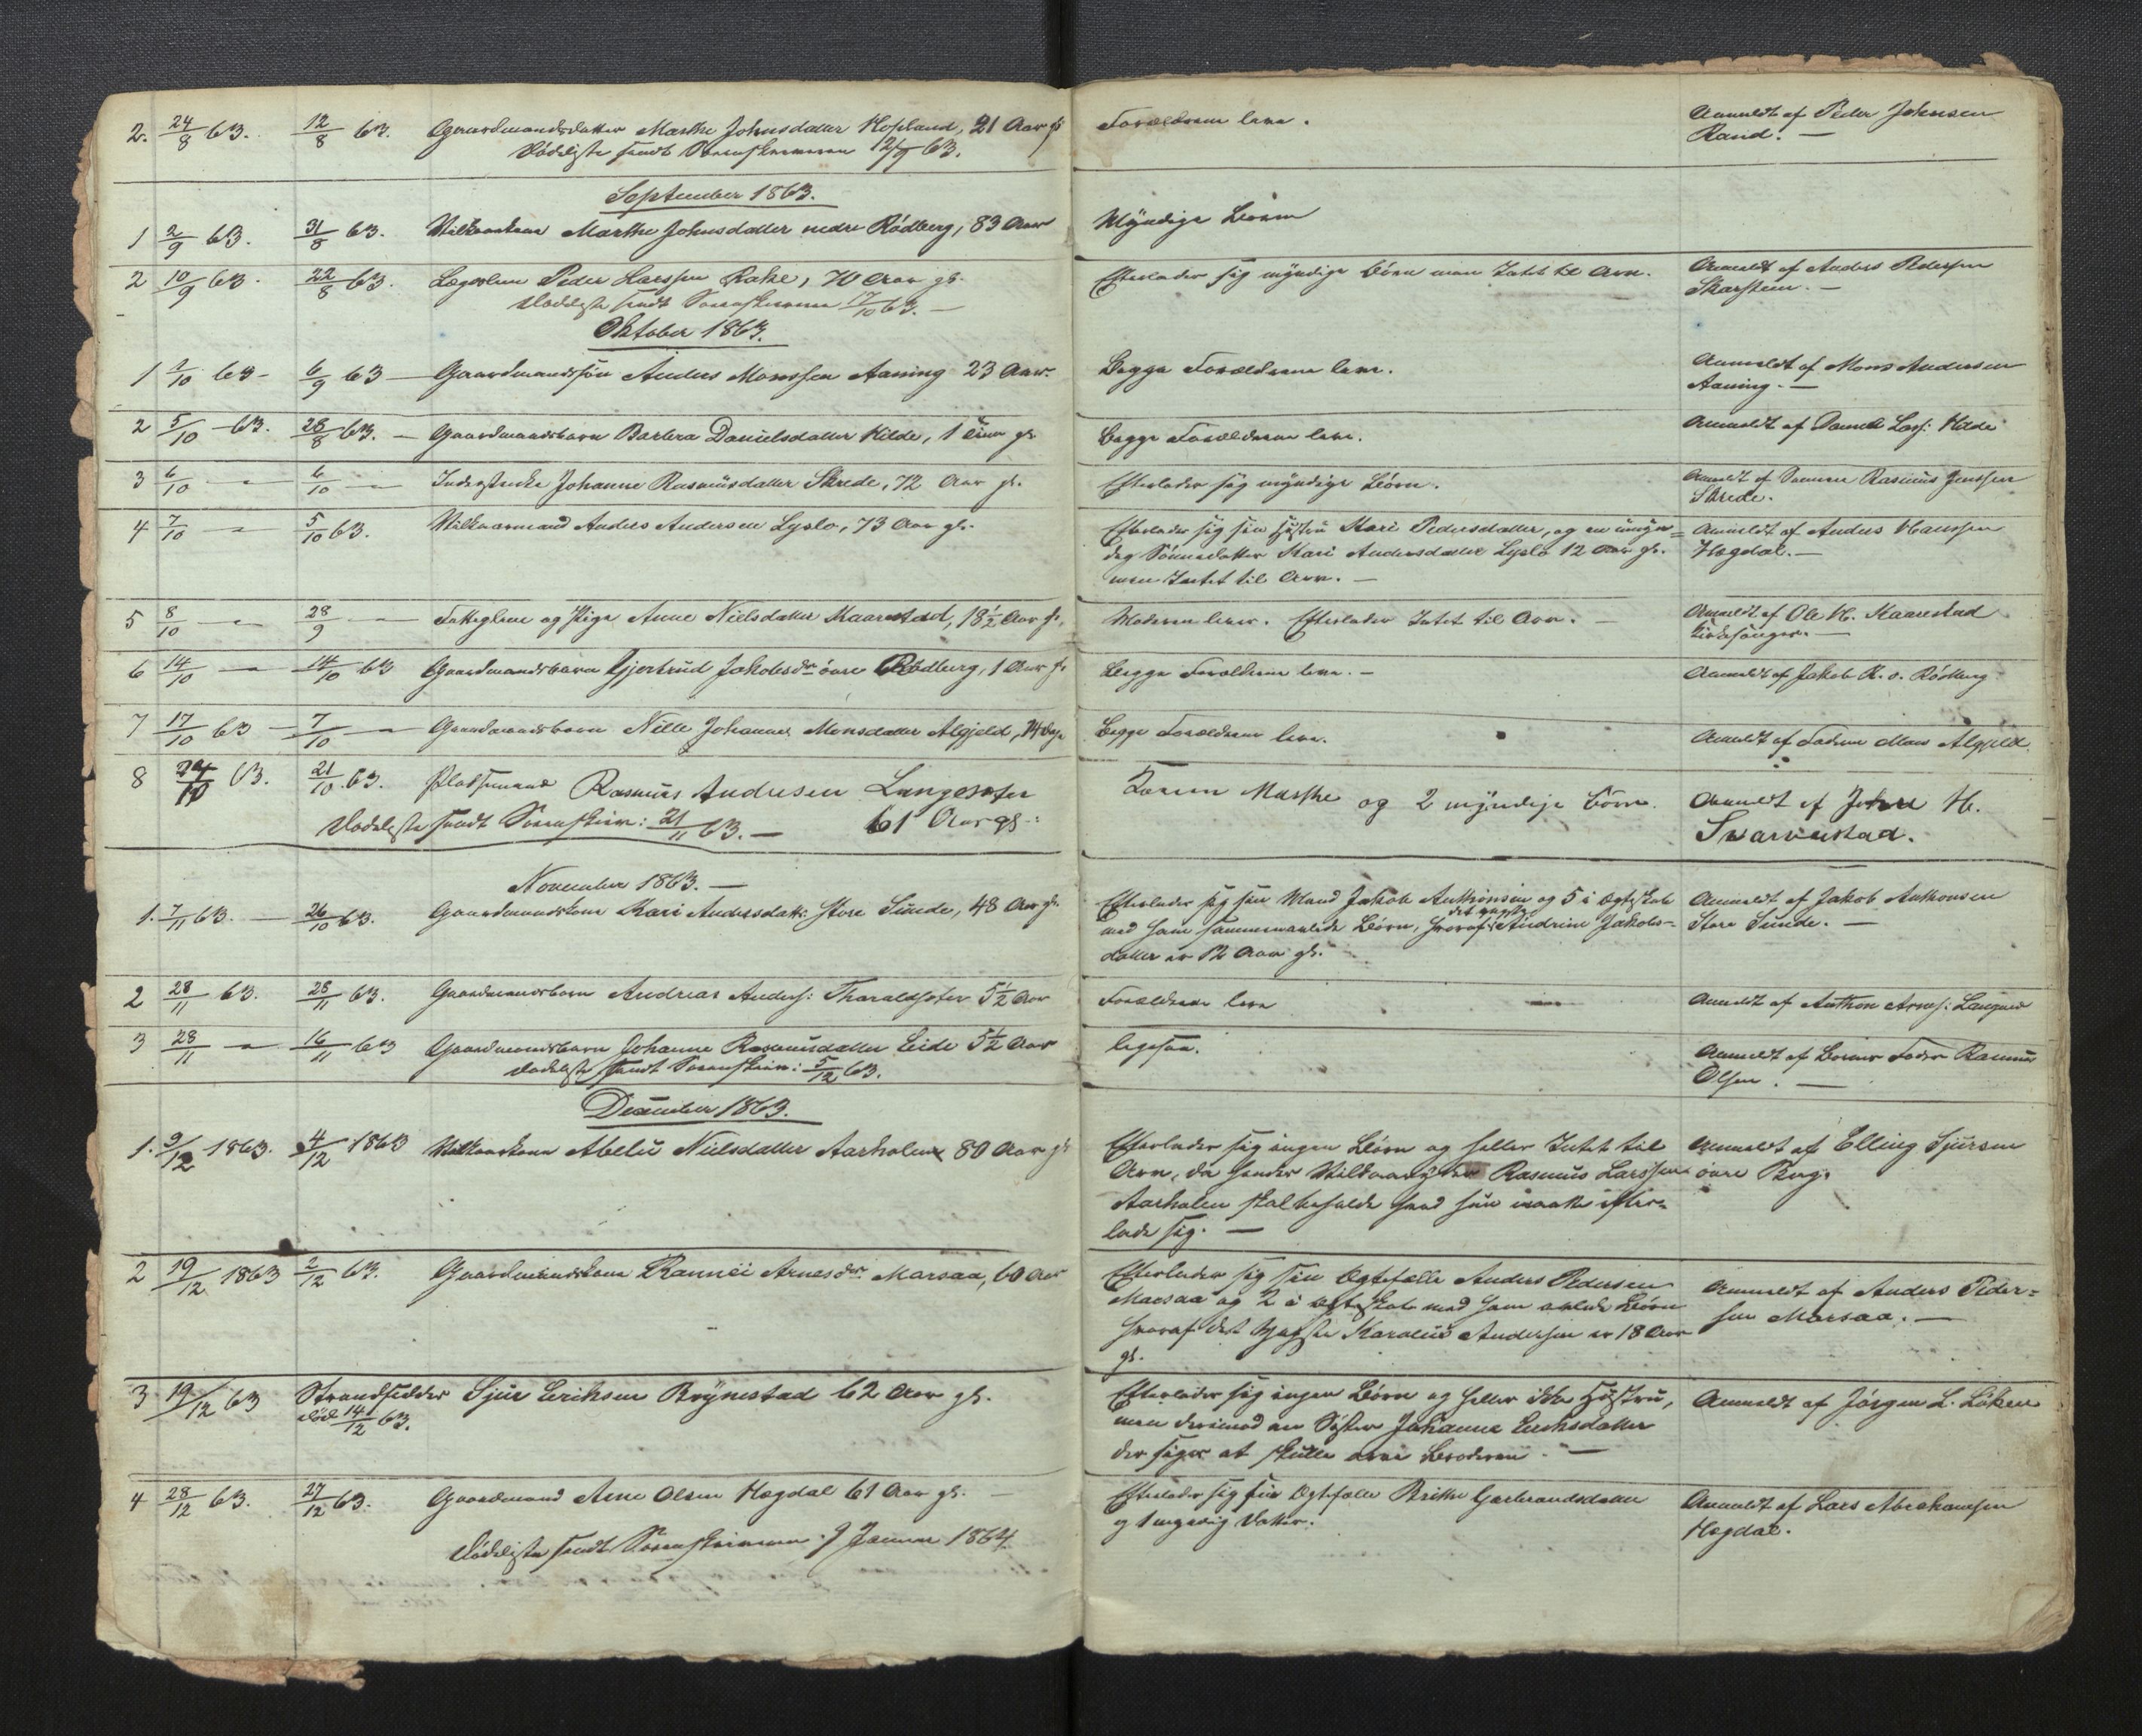 2. 24/8 63. 12/8 63. Gaardmandsdatter Marthe Johnsdatter Hopland, 21 Aar gl Forældrene leve. Anmeldt af Peder Johnsen
Dødsliste sendt Sorenskriveren 12/9 63. Rand. —
September 1863.
1 2/9 63. 31/8 63. Vilkaarskone Marthe Johnsdatter nedre Rødberg, 83 Aar Myndige Børn
2 10/9 63. 22/8 63. Lægdslem Peder Larssen Rake, 70 Aar gl. Efterlader sig myndige Børn men Intet til Arv. Anmeldt af Anders Pedersen
Dødsliste sendt Sorenskriveren 17/10 63. — Skarstein. —
Oktober 1863.
1 2/10 63 - 6/9 63 — Gaardmandssøn Anders Monssen Aaning 23 Aar. Begge Forældrene leve. Anmeldt af Mons Andersen
Aaning. —
2 5/10 - 63. 28/8 63. — Gaardmandsbarn Barbra Danielsdatter Hilde, 1 gl. Begge Forældrene leve. Anmeldt af Daniel Lars: Hilde
3 6/10 — 6/10 — Inderstenke Johanne Rasmusdatter Skrede, 72 Aar gl. Efterlader sig myndige Børn. Anmeldt af Sønnen Rasmus Jenssen
Skrede.
4 7/10 — 5/10 63. Vilkaarmand Anders Andersen Lyslo, 73 Aar gl. Efterlader sig sin Hustru Kari Pedersdatter, og en umyn= Anmeldt af Anders Hanssen
dig Sønnedatter Kari Andersdatter Lyslo 12 Aar gl. Hogdal. —
men Intet til Arv. —
5 8/10 — 28/9 — Fattiglem og Pige Anne Nielsdatter Maarstad, 18½ Aar gl. Moderen lever. Efterlader Intet til Arv. — Anmeldt af Ole H. Kaarestad
Kirkesanger. —
6 14/10 — 14/10 63 Gaardmandsbarn Gjertrud Jakobsdr øvre Rødberg, 1 Aar gl Begge Forældrene leve. — Anmeldt af Jakob R. ø. Rødberg
7 17/10 63 — 7/10 — Gaardmandsbarn Nille Johanne Monsdatter Algjeld, 14 Dage Begge Forældrene leve. Anmeldt af Faderen Mons Algjeld.
8 24/10 63. 21/10 63. Pladsmand Rasmus Andresen Langesæter Konen Marthe og 2 myndige Børn. Anmeldt af John H.
Dødsliste sendt Sorenskriv: 21/11 63. — 61 Aar gl: Svarvestad.
November 1863. —
1. 7/11 63. — 26/10 63. Gaardmandskone Kari Andersdatt: Store Sunde, 48 Aar gl. Efterlader sig sin Mand Jakob Anthonsen og 5 i Ægteskab Anmeldt af Jakob Anthonsen
med ham sammenavlede Børn, hvoraf det yngste Andrine Jakobs- Store Sunde. —
datter er 12 Aar gl.
2 28/11 63. 28/11 63. Gaardmandsbarn Andreas Anders: Tharaldsæter 5½ Aar Forældrene leve — Anmeldt af Anthon
3 28/11 — 16/11 63 Gaardmandsbarn Johanne Rasmusdatter Eide 5½ Aar ligesaa. Anmeldt af Barnets Fader Rasmus
Dødsliste sendt Sorenskriv: 5/12 63. Olsen. —
December 1863.
1. 9/12 1863. 4/12 1863 Vilkaarskone Abelu Nielsdatter Aarholen 80 Aar gl Efterlader sig ingen Børn og heller Intet til Anmeldt af Elling Sjursen
Arv, da hendes Vilkaarsyder Rasmus Larssen øvre Berge
Aarholen skal beholde hvad hun maatte efter=
lade sig. —
2 19/12 1863 2/12 63. Gaardmandskone Rannei Arnesdr. Marsaa, 60 Aar Efterlader sig sin Ægtefælle Anders Pedersen Anmeldt af Anders Peder=
Marsaa og 2 i Ægteskab med ham avlede Børn sen Marsaa. —
hvoraf det yngste Karolus Andersen er 18 Aar
gl.
3 19/12 63 Strandsidder Sjur Eriksen Brynestad 62 Aar gl. Efterlader sig ingen Børn og heller ikke Hustru, Anmeldt af Jørgen L. Løken
død 14/12 63. men derimod en Søster Johanne Eriksdatter
der siges at skulle arve Broderen. —
4 28/12 63. 27/12 63. Gaardmand Arne Olsen Hogdal 61 Aar gl. — Efterlader sig sin Ægtefælle Brithe Gerbrandsdatter Anmeldt af Lars Abrahamsen
og 1 myndig Datter. Hogdal.
Dødsliste sendt Sorenskriveren 9 Januar 1864